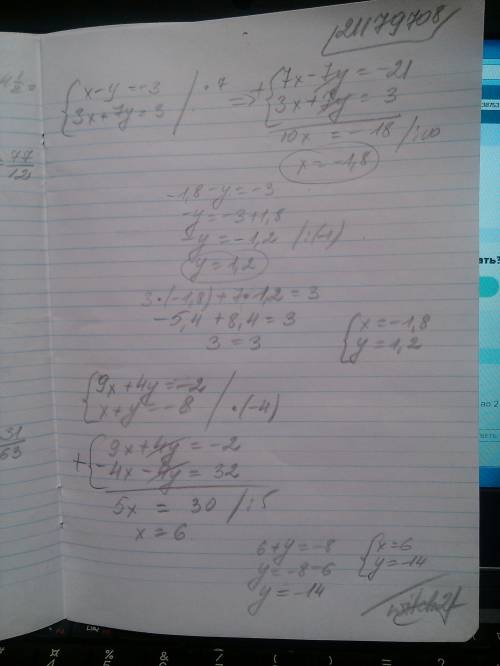 21179708
{x-y=-3 / ·7
{3x+7y=3
=> + {7x-7y=-21
{3x+7y=3
10x = -18 /:10
x=-1,8
-1,8-y=-3
-y=-3+1,8
-y=-1,2 /:(-1)
y=1,2
3·(-1,8)+7·1,2=3
-5,4+8,4=3
3=3
{x=-1,8
{y=1,2
{9x+4y=-2
{x+y=-8 / ·(-4)
+ {9x+4y=-2
{-4x-4y=32
5x = 30 /:5
x=6
6+y=-8
y=-8-6
y=-14
{x=6
{y=-14
=77/12
31/63